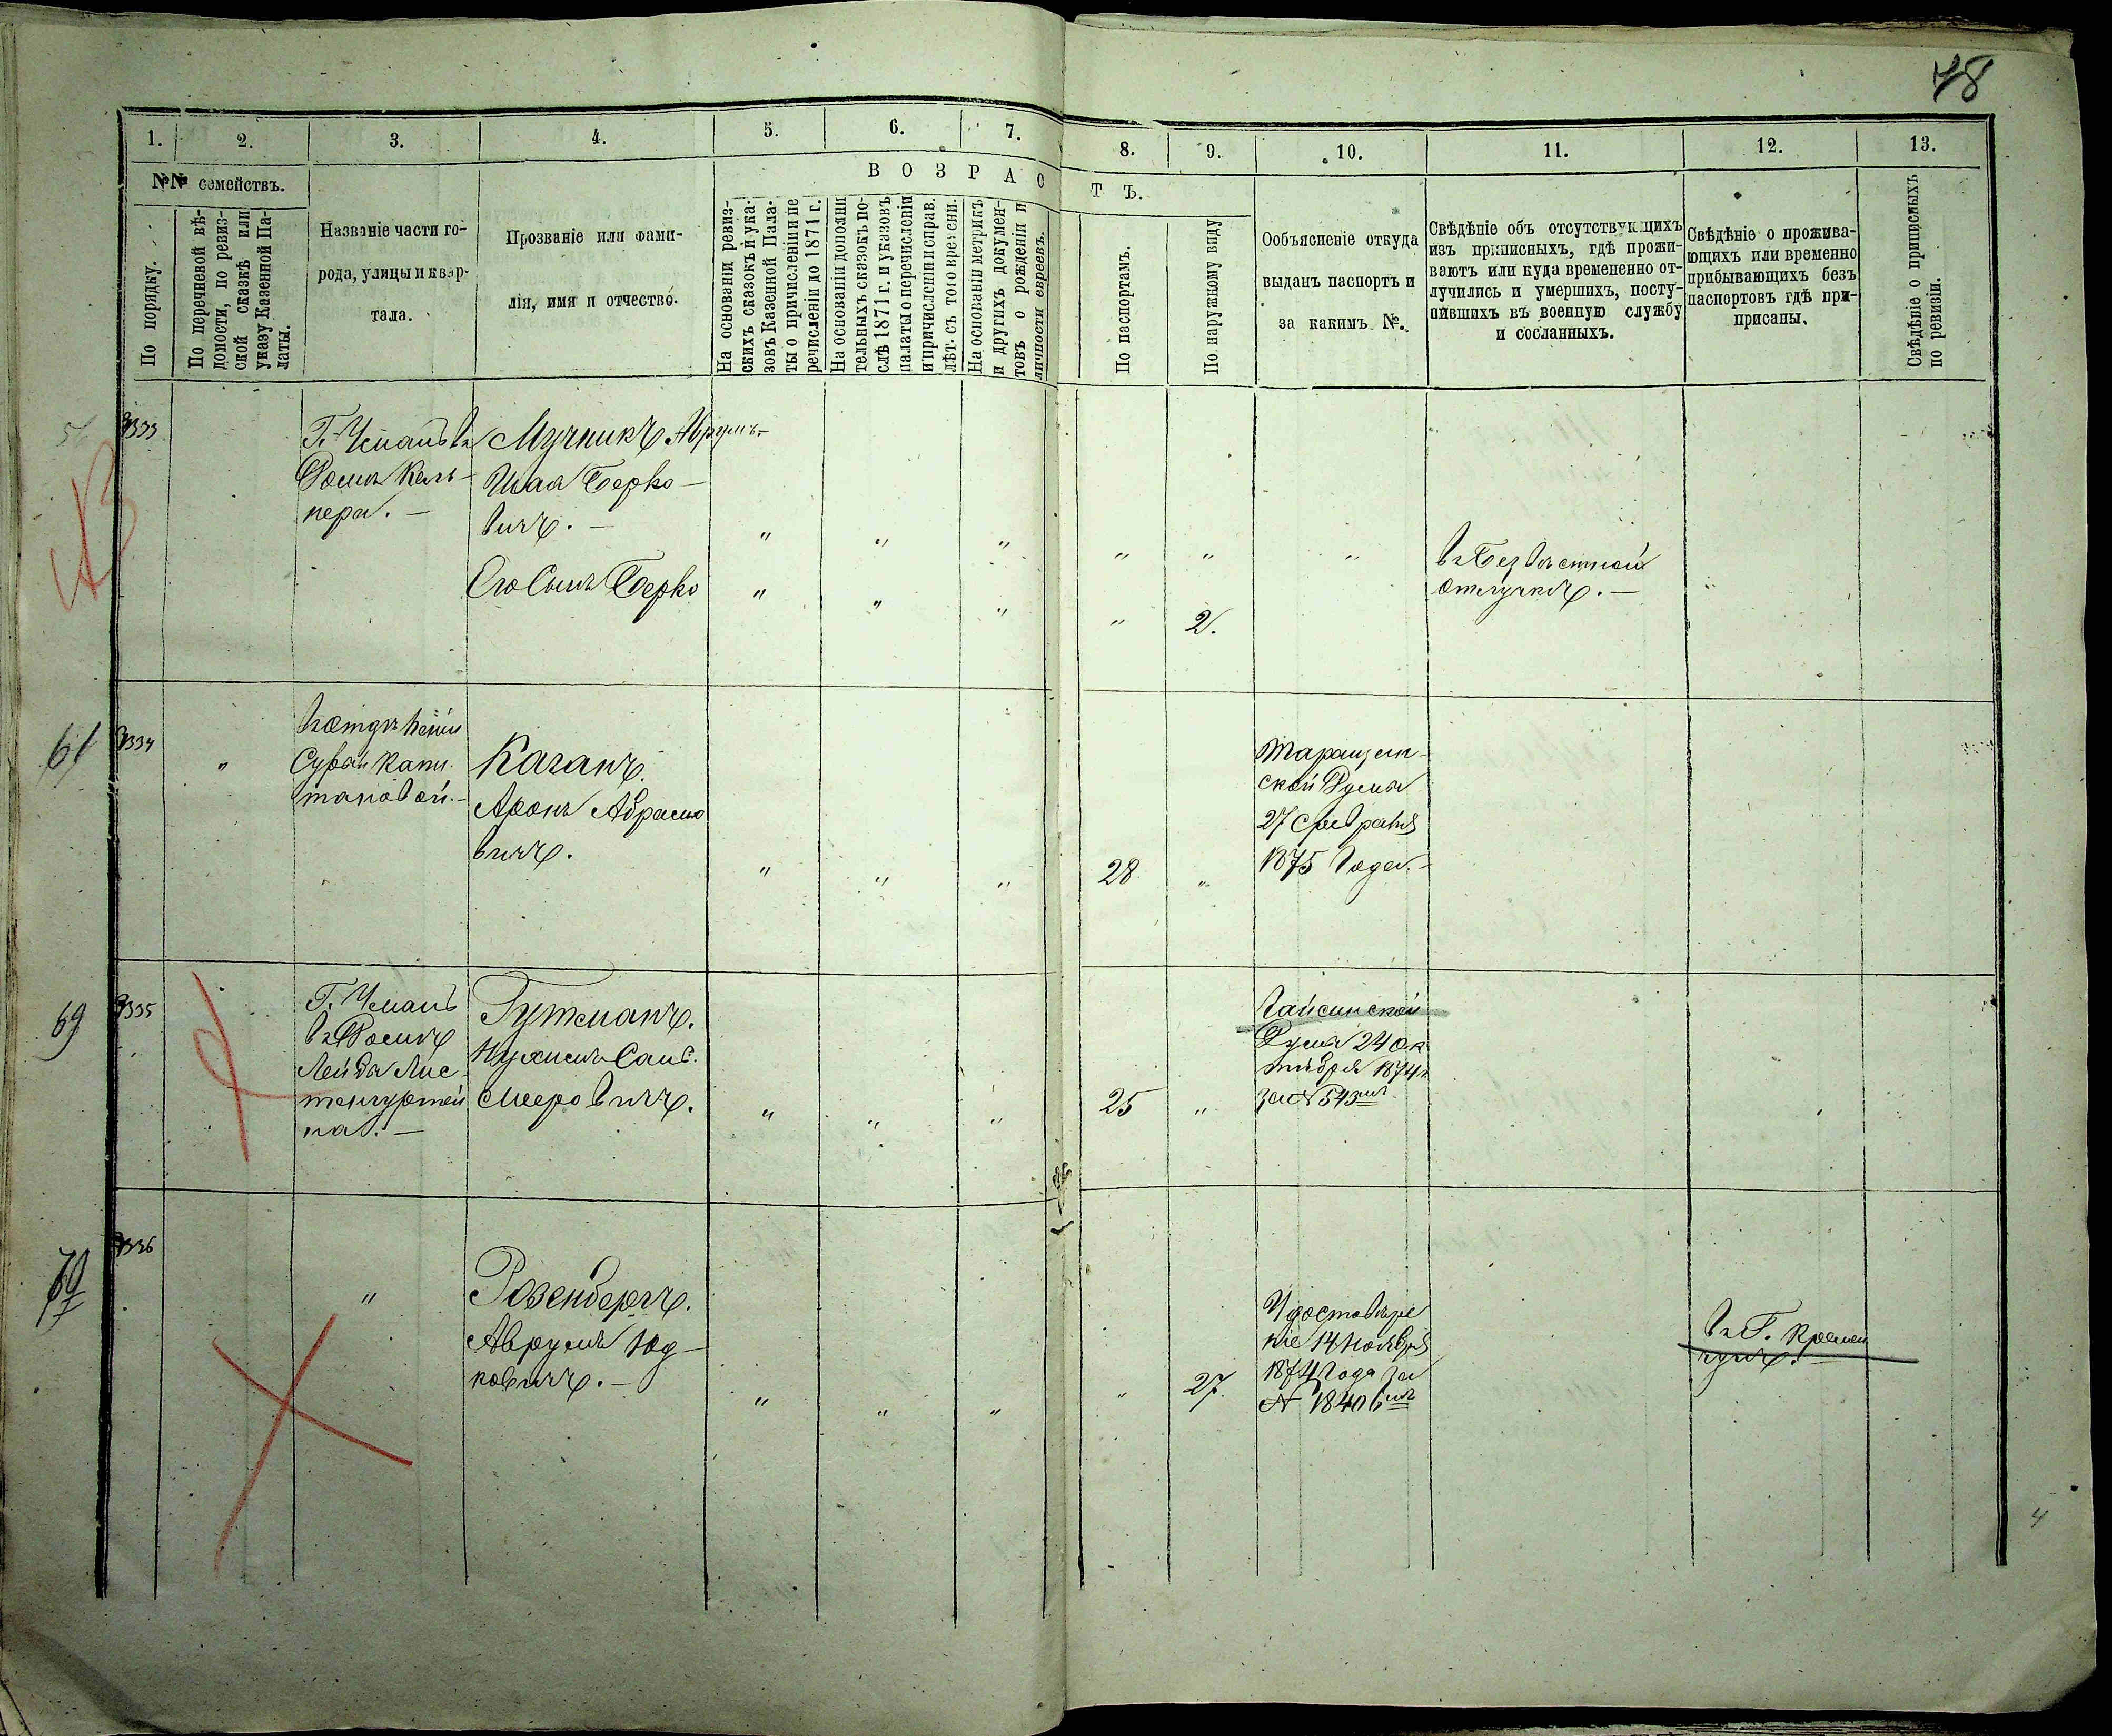 78
1. 2. 3. 4. 5. 6. 7. 8. 9. 10. 11. 12. 13.
№№ семействъ.
В О З Р А С Т Ъ.
По порядку.
По перечневой вѣ-
домости, по ревиз-
ской сказкѣ или
указу Казенной Па-
латы.
Названіе части го-
рода, улицы и квар-
тала.
Прозваніе или фами-
лія, имя и отчество.
На основаніи ревиз-
скихъ сказокъ и ука-
зовъ Казенной Пала-
ты о причисленіи и пе
речисленіи до 1871 г.
На основаніи дополни
тельныхъ сказокъ по-
слѣ 1871 г. и указовъ
палаты о перечисленіи
и причисленіи и справ.
лѣт. съ того времени.
На основаніи метрикъ
и другихъ докумен-
товъ о рожденіи и
личности евреевъ.
По паспортамъ.
По наружному виду
Ообъясненіе откуда
выданъ паспортъ и
за какимъ №.
Свѣдѣніе объ отсутствующихъ
изъ приписныхъ, гдѣ прожи-
ваютъ или куда времененно от-
лучились и умершихъ, посту-
пившихъ въ военную службу
и сосланныхъ.
Свѣдѣніе о прожива-
ющихъ или временно
прибывающихъ безъ
паспортовъ гдѣ при-
присаны.
Свѣдѣніе о приписныхъ
по ревизіи.
333
Г. Умань въ
Домѣ Кель-
нера. —
Мучникъ Аврумъ-
Шая Берко-
вичъ. —
Его Сынъ Берко
2.
въ безвѣстной
отлучкѣ. —
61
334
Каганъ.
Аронъ Абрамо
вичъ.
28
Таращан-
ской Думы
27 Февраля
1875 года. —
69
335
Г. Умань
въ Домѣ
Гутманъ.
Мееровичъ.
25
Гайсинской
Думы 24 Ок
тября 1874 г
за № 543
336
Розенбергъ.
Аврумъ Юд-
ковичъ. —
27.
Удостовѣре
ніе 14 Ноября
1874 года за
№ 18406
въ Г. Кремен
чугѣ. —
4